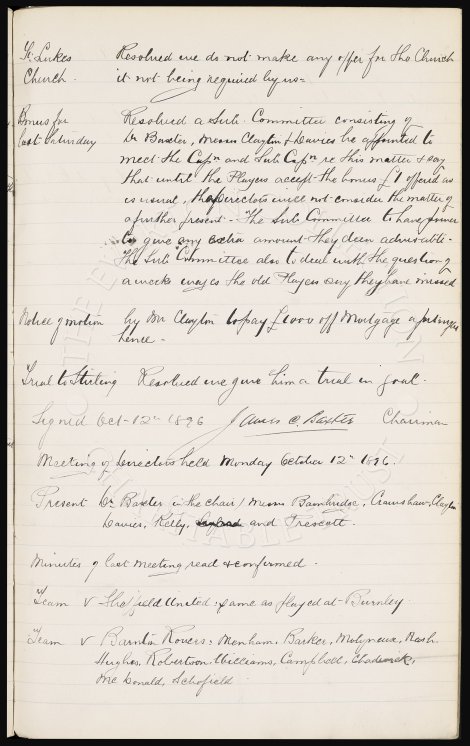 St. Lukes Church. Resolved we do not make any offer for the Church
it not being required by us =
Bonus for last Saturday Resolved a Sub. Committee consisting of
Dr Baxter, Messrs Clayton & Davies be appointed to
meet the Capn and Sub Capn re this matter & say
that until the Players accept the bonus £1 offered as
is usual, the Directors will not consider the matter of
a further present - The Sub Committee to have power
to give any extra amount they deem advisable -
The Sub Committee also to deal with the question of
a weeks wages the old Players say they have missed
Notice of motion by Mr Clayton to pay £1000 off Mortgage a fortnight
hence -
Trial to Stirling Resolved we give him a trial in goal.
Signed Oct - 12th 1896 James C. Baxter Chairman
Meeting of Directors held Monday October 12th 1896.
Present Dr Baxter in the chair / Messrs Bainbridge, Crawshaw, Clayton
Davies, Kelly, and Prescott.
Minutes of last meeting read & confirmed.
Team v Sheffield United: same as played at Burnley
Team v Barnton Rovers: Menham, Barker, Molyneux, Nash
Hughes, Robertson, Williams, Campbell, Chadwick,
McDonald, Schofield